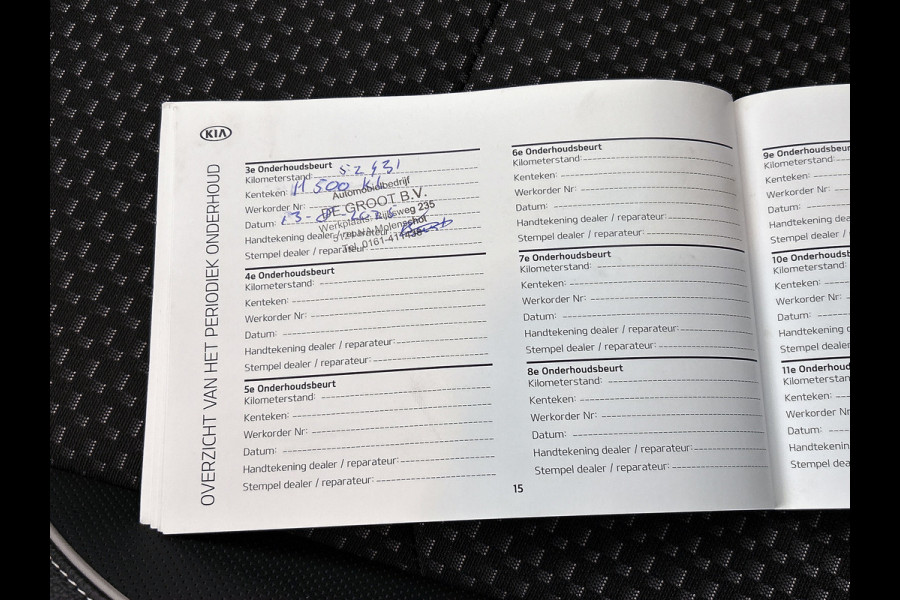 KIA
OVERZICHT VAN HET PERIODIEK ONDERHOUD
3e Onderhoudsbeurt
Kilometerstand: 52431
Kenteken: H 500
Werkorder Nr:
Datum: 13-
Handtekening dealer / reparateur:
Stempel dealer / reparateur:
Automobielbedrijf
DE GROOT B.V.
Werkplaats: Rijksweg 235
Tel. 0161-411
4e Onderhoudsbeurt
Kilometerstand:
Kenteken:
Werkorder Nr:
Datum:
Handtekening dealer / reparateur:
Stempel dealer / reparateur:
5e Onderhoudsbeurt
Kilometerstand:
Kenteken:
Werkorder Nr:
Datum:
Handtekening dealer / reparateur:
Stempel dealer / reparateur:
6e Onderhoudsbeurt
Kilometerstand:
Kenteken:
Werkorder Nr:
Datum:
Handtekening dealer / reparateur:
Stempel dealer / reparateur:
7e Onderhoudsbeurt
Kilometerstand:
Kenteken:
Werkorder Nr:
Datum:
Handtekening dealer / reparateur:
Stempel dealer / reparateur:
8e Onderhoudsbeurt
Kilometerstand:
Kenteken:
Werkorder Nr:
Datum:
Handtekening dealer / reparateur:
Stempel dealer / reparateur:
15
9e Onderhoudsbeu
Kilometerstand:
Kenteken:
Werkorder Nr:
Datum:
Handtekening d
Stempel dealer
10e Onderhoudsb
Kilometerstand:
Kenteken:
Werkorder Nr:
Datum:
Handtekening d
Stempel dealer
11e Onderhoud
Kilometerstan
Kenteken:
Werkorder Nr
Datum:
Handtekening
Stempel dea